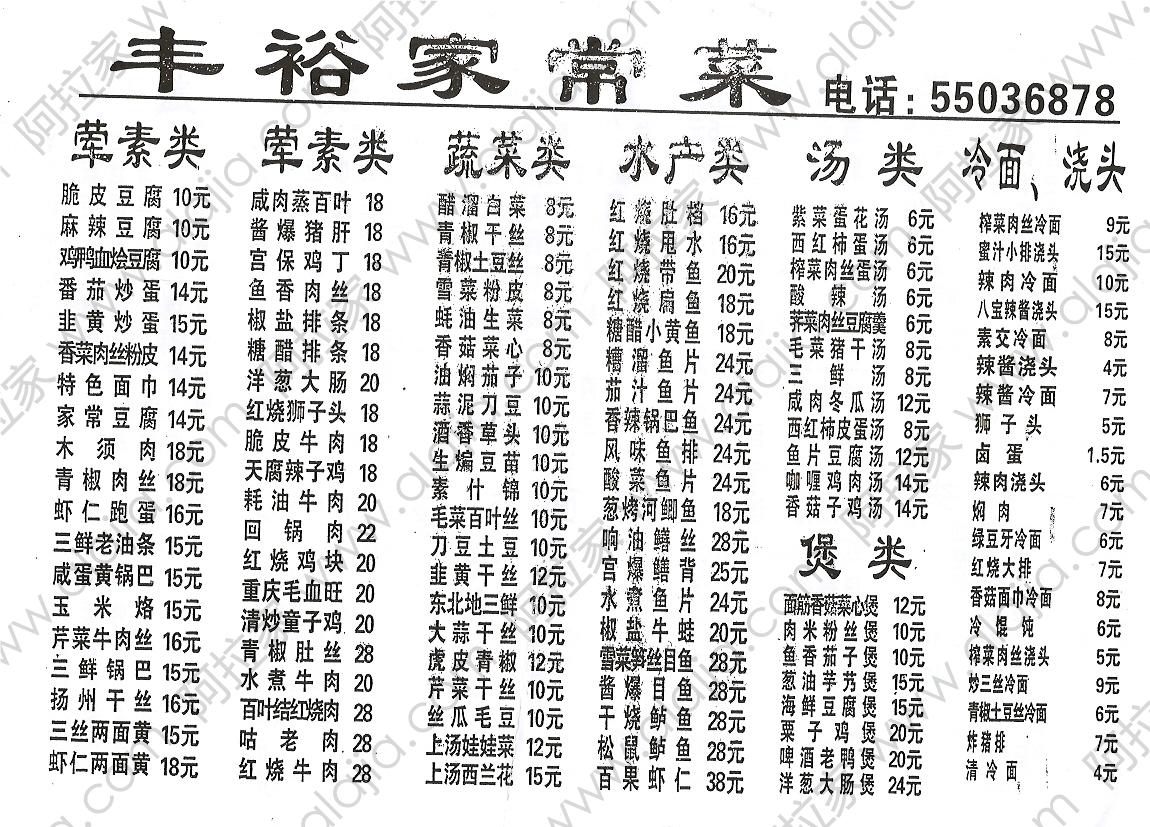 丰裕家常菜
电话：55036878
荤素类
脆皮豆腐 10元
麻辣豆腐 10元
鸡鸭血烩豆腐 10元
番茄炒蛋 14元
韭黄炒蛋 15元
香菜肉丝粉皮 14元
特色面巾 14元
家常豆腐 14元
木须肉 18元
青椒肉丝 18元
虾仁跑蛋 16元
三鲜老油条 15元
咸蛋黄锅巴 15元
玉米烙 15元
芹菜牛肉丝 16元
三鲜锅巴 15元
扬州干丝 16元
三丝两面黄 15元
虾仁两面黄 18元
荤素类
咸肉蒸百叶 18
酱爆猪肝 18
宫保鸡丁 18
鱼香肉丝 18
椒盐排条 18
糖醋排条 18
洋葱大肠 20
红烧狮子头 18
脆皮牛肉 18
天腐辣子鸡 18
耗油牛肉 20
回锅肉 22
红烧鸡块 20
重庆毛血旺 20
清炒童子鸡 20
青椒肚丝 28
水煮牛肉 20
百叶结红烧肉 28
咕老肉 28
红烧牛肉 28
蔬菜类
醋溜白菜 8元
青椒干丝 8元
青椒土豆丝 8元
雪菜粉皮 8元
蚝油生菜 8元
香菇菜心 8元
油焖茄子 10元
蒜泥刀豆 10元
酒香草头 10元
生煸豆苗 10元
素什锦 10元
毛菜百叶丝 10元
刀豆土豆 10元
韭黄干丝 12元
东北地三鲜 10元
大蒜干丝 10元
虎皮青椒 12元
芹菜干丝 10元
丝瓜毛豆 10元
上汤娃娃菜 12元
上汤西兰花 15元
水产类
红烧肚档 16元
红烧甩水 16元
红烧带鱼 20元
红烧扁鱼 18元
糖醋小黄鱼 18元
糟溜鱼片 24元
茄汁鱼片 24元
香辣锅巴鱼 24元
风味鱼排 24元
酸菜鱼 24元
葱烤河鲫鱼 18元
响油鳝丝 28元
宫爆鳝背 25元
水煮鱼片 24元
椒盐牛蛙 20元
雪菜笋丝目鱼 28元
酱爆目鱼 28元
干烧鲈鱼 28元
松鼠鲈鱼 28元
百果虾仁 38元
汤类
紫菜蛋花汤 6元
西红柿蛋汤 6元
榨菜肉丝蛋汤 6元
酸辣汤 6元
荠菜肉丝豆腐羹 6元
毛菜猪干汤 7元
三鲜汤 8元
咸肉冬瓜汤 12元
西红柿皮蛋汤 8元
鱼片豆腐汤 12元
咖喱鸡肉汤 14元
香菇子鸡汤 14元
煲类
面筋香菇菜心煲 12元
肉米粉丝煲 10元
鱼香茄子煲 10元
葱油芋艿煲 15元
海鲜豆腐煲 15元
栗子鸡煲 20元
啤酒老鸭煲 20元
洋葱大肠煲 24元
冷面、浇头
榨菜肉丝冷面 9元
蜜汁小排浇头 15元
辣肉冷面 10元
八宝辣酱浇头 15元
素交冷面 8元
辣酱浇头 4元
辣酱冷面 7元
狮子头 5元
卤蛋 1.5元
辣肉浇头 6元
焖肉 7元
绿豆牙冷面 6元
红烧大排 7元
香菇面巾冷面 8元
冷馄饨 6元
榨菜肉丝浇头 5元
炒三丝冷面 9元
青椒土豆丝冷面 6元
炸猪排 7元
清冷面 4元
阿拉家 www.alajia.com